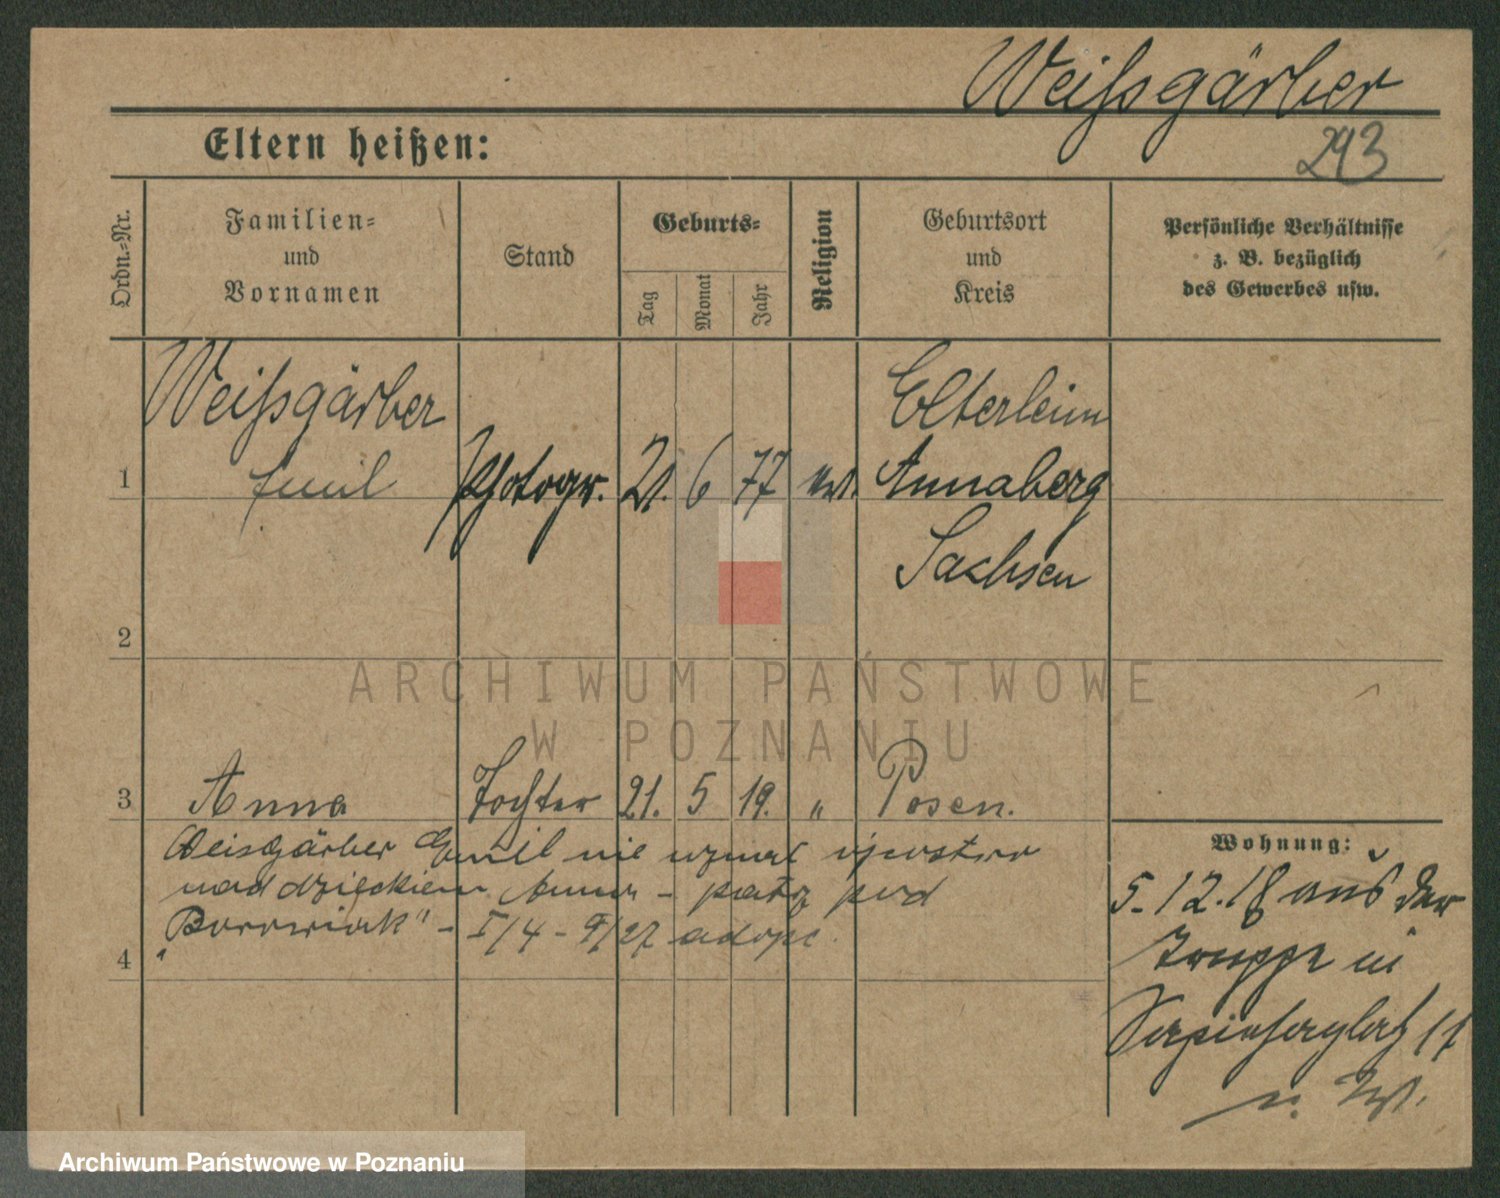 Weißgärber
Eltern heißen:
293
Ordn.-Nr.
Familien-
und
Vornamen
Stand
Geburts-
Tag
Monat
Jahr
Religion
Geburtsort
und
Kreis
Persönliche Verhältnisse
z. B. bezüglich
des Gewerbes usw.
Weißgärber
Elterlein
1 Emil Photogr. 21. 6 77 ev. Annaberg
Sachsen
2
ARCHIWUM PAŃSTWOWE
W POZNANIU
3 Anna Tochter 21. 5 19. " Posen.
Weisgärber Emil nie uznał ojcostwa
nad dzieckiem Anna - patrz pod
"Borowiak" -
4
Wohnung:
5.12.18 aus der
Truppe in
17
Archiwum Państwowe w Poznaniu